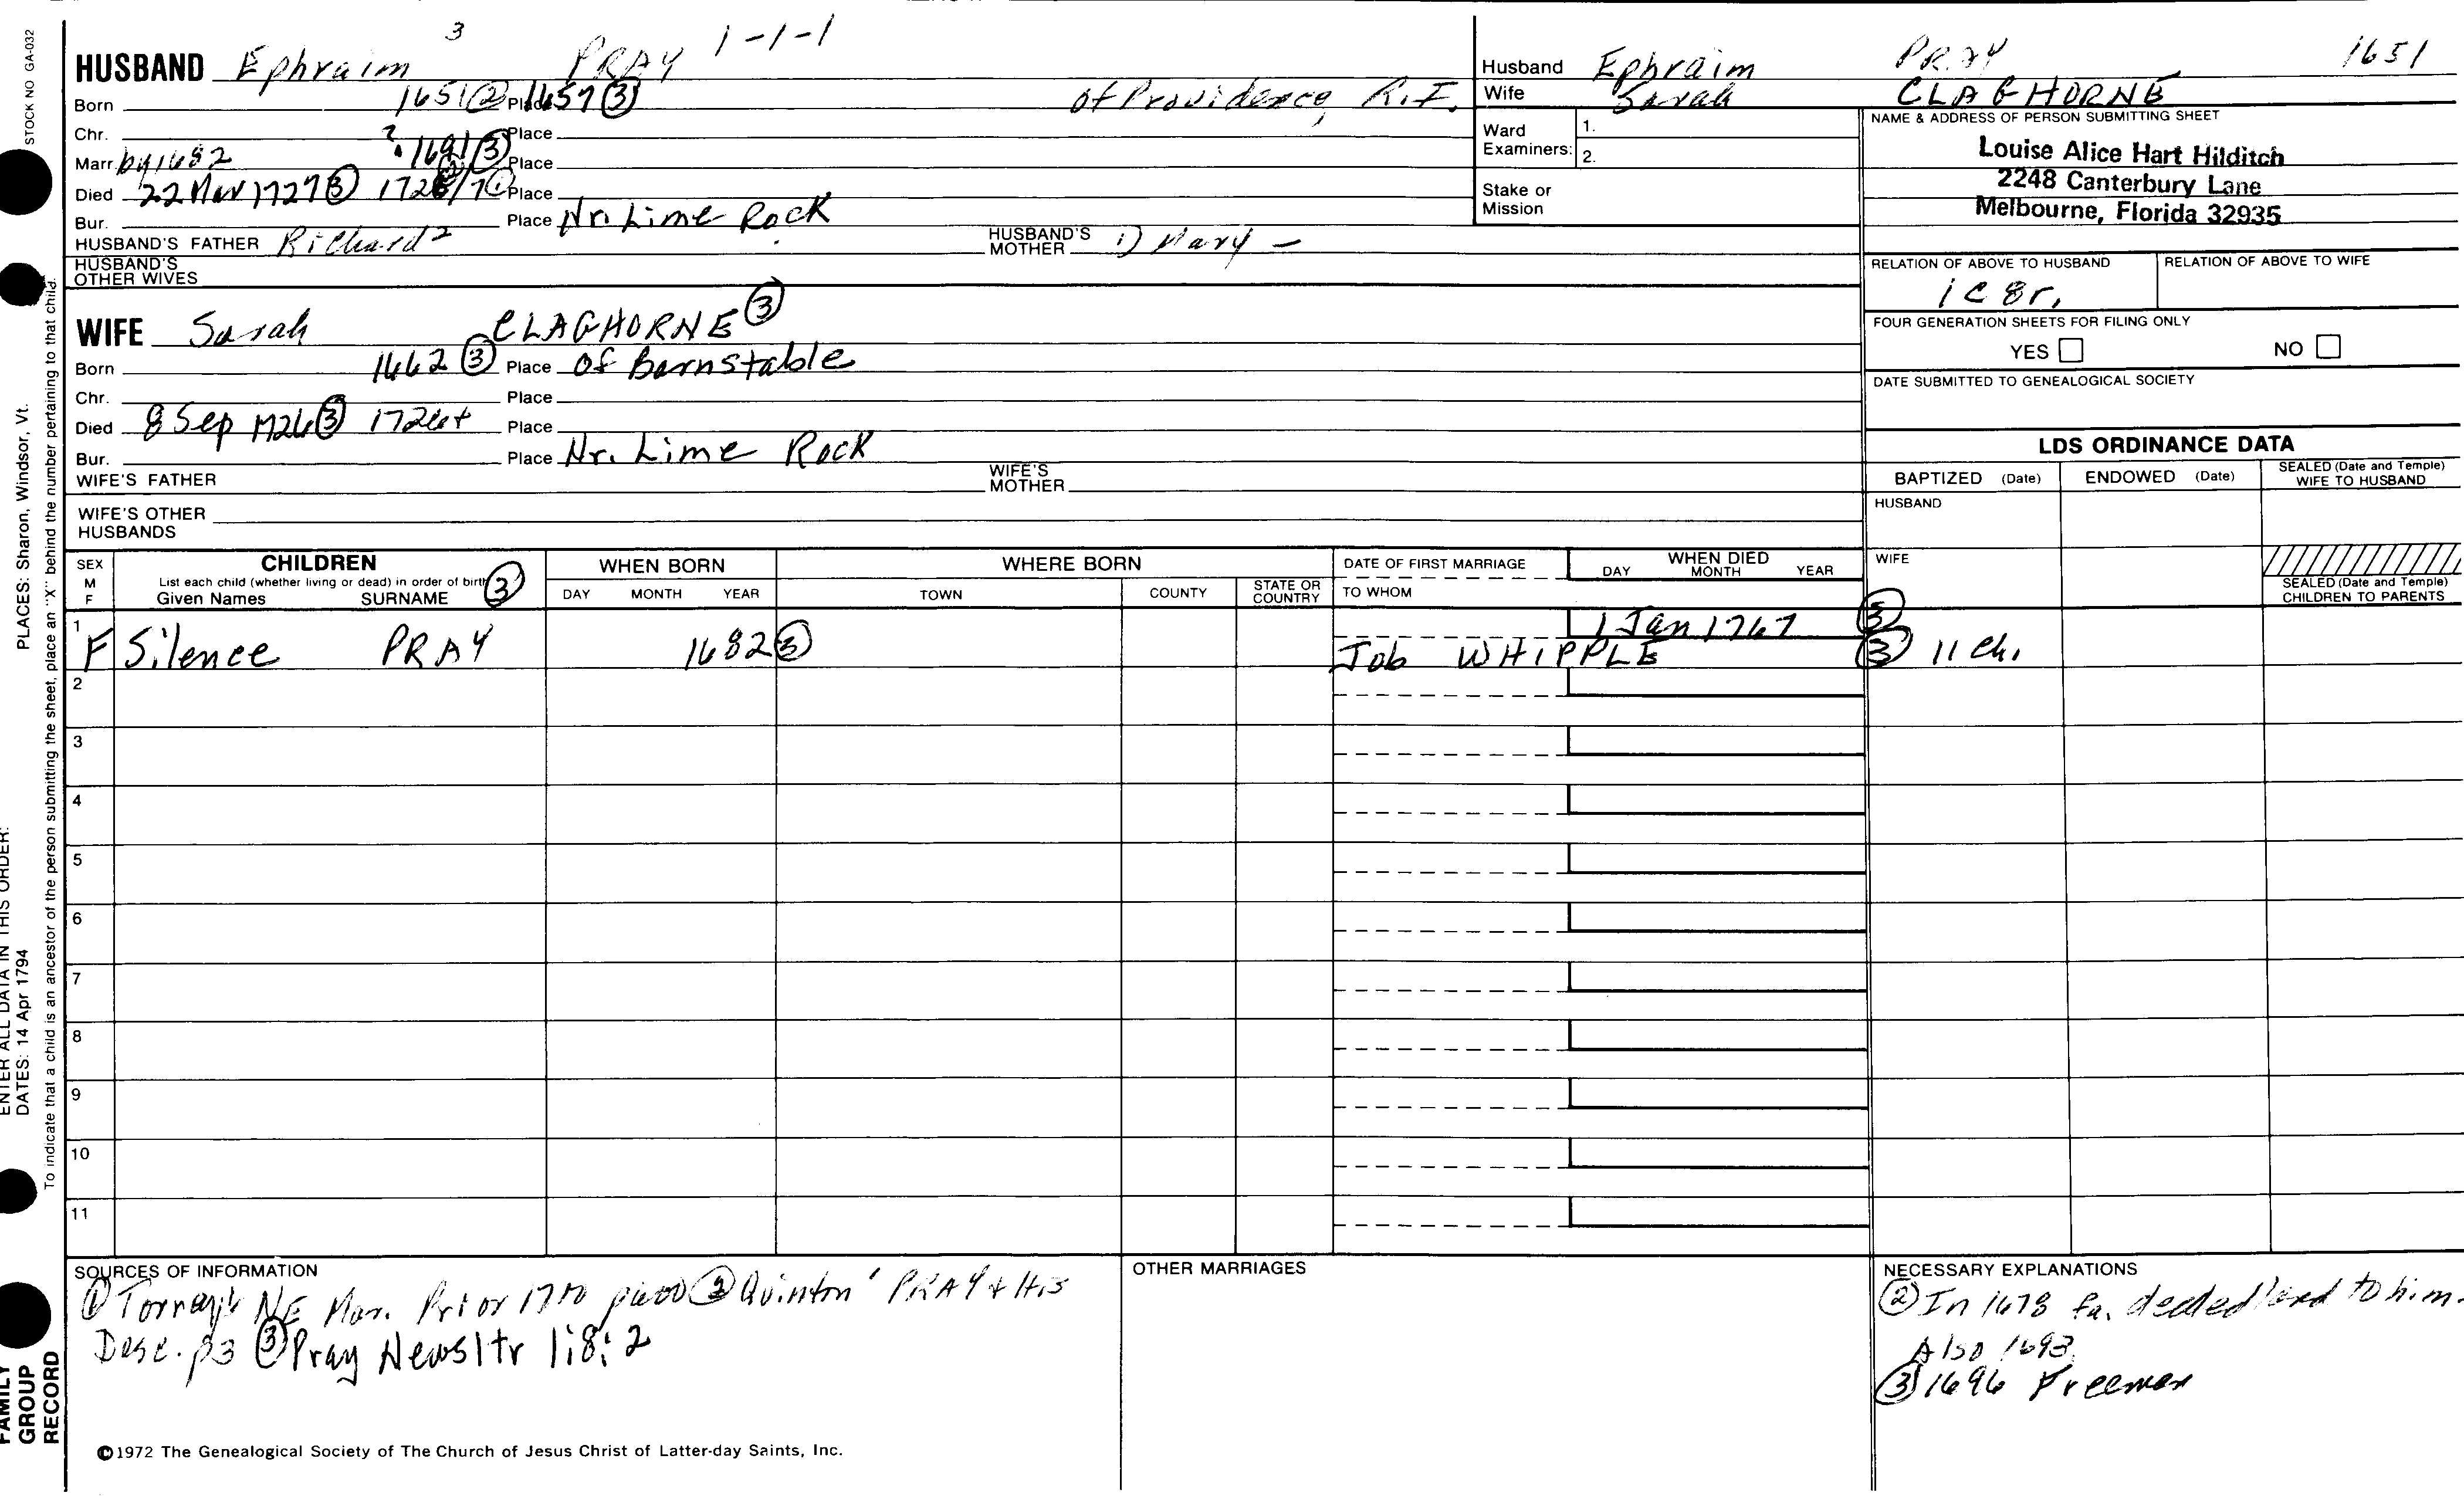 STOCK NO GA-032
HUSBAND Ephraim 3 PRAY 1-1-1
Born 1651 ② Place 1657 ③ of Providence, R.I.
Chr. Place
Marr. by 1682 ? 1691 ③ Place
Died 22 Mar 1727 ③ 1726/7 ① Place
Bur. Place Nr. Lime Rock
HUSBAND'S FATHER Richard 2 HUSBAND'S MOTHER 1) Mary —
HUSBAND'S OTHER WIVES
Husband Ephraim PRAY 1651
Wife Sarah CLAGHORNE
Ward Examiners: 1.
2.
Stake or Mission
NAME & ADDRESS OF PERSON SUBMITTING SHEET
Louise Alice Hart Hilditch
2248 Canterbury Lane
Melbourne, Florida 32935
RELATION OF ABOVE TO HUSBAND RELATION OF ABOVE TO WIFE
1C 8r.
FOUR GENERATION SHEETS FOR FILING ONLY
YES NO
DATE SUBMITTED TO GENEALOGICAL SOCIETY
WIFE Sarah CLAGHORNE ③
Born 1662 ③ Place Of Barnstable
Chr. Place
Died 8 Sep 1726 ③ 1726+ Place
Bur. Place Nr. Lime Rock
WIFE'S FATHER WIFE'S MOTHER
WIFE'S OTHER HUSBANDS
LDS ORDINANCE DATA
BAPTIZED (Date) ENDOWED (Date) SEALED (Date and Temple) WIFE TO HUSBAND
HUSBAND
WIFE
SEALED (Date and Temple) CHILDREN TO PARENTS
SEX M F
CHILDREN
List each child (whether living or dead) in order of birth ③
Given Names SURNAME
WHEN BORN
DAY MONTH YEAR
WHERE BORN
TOWN COUNTY STATE OR COUNTRY
DATE OF FIRST MARRIAGE
TO WHOM
WHEN DIED
DAY MONTH YEAR
1 F Silence PRAY 1682 ③ 1 Jan 1767 ③
Job WHIPPLE ③ 11 Ch.
2
3
4
5
6
7
8
9
10
11
SOURCES OF INFORMATION
① Torrey's NE Mar. Prior 1700 p600 ② Quinton' PRAY & His
Desc. p3 ③ Pray Newsltr 1:8:2
OTHER MARRIAGES
NECESSARY EXPLANATIONS
② In 1678 fa. deeded land to him.
Also 1693
③ 1696 Freeman
©1972 The Genealogical Society of The Church of Jesus Christ of Latter-day Saints, Inc.
ENTER ALL DATA IN THIS ORDER:
DATES: 14 Apr 1794
PLACES: Sharon, Windsor, Vt.
To indicate that a child is an ancestor of the person submitting the sheet, place an "X" behind the number pertaining to that child.
FAMILY
GROUP
RECORD